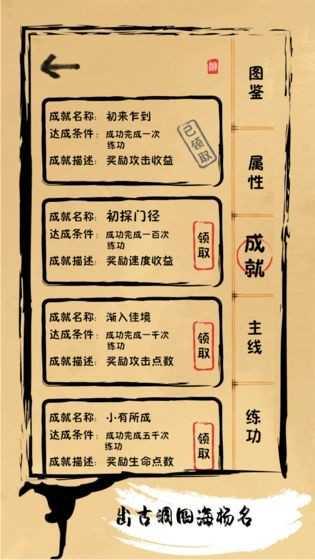 成就名称: 初来乍到
达成条件: 成功完成一次
练功
成就描述: 奖励攻击收益
已领取
成就名称: 初探门径
达成条件: 成功完成一百次
练功
成就描述: 奖励速度收益
领取
成就名称: 渐入佳境
达成条件: 成功完成一千次
练功
成就描述: 奖励攻击点数
领取
成就名称: 小有所成
达成条件: 成功完成五千次
练功
成就描述: 奖励生命点数
领取
图鉴
属性
成就
主线
练功
出古洞四海扬名